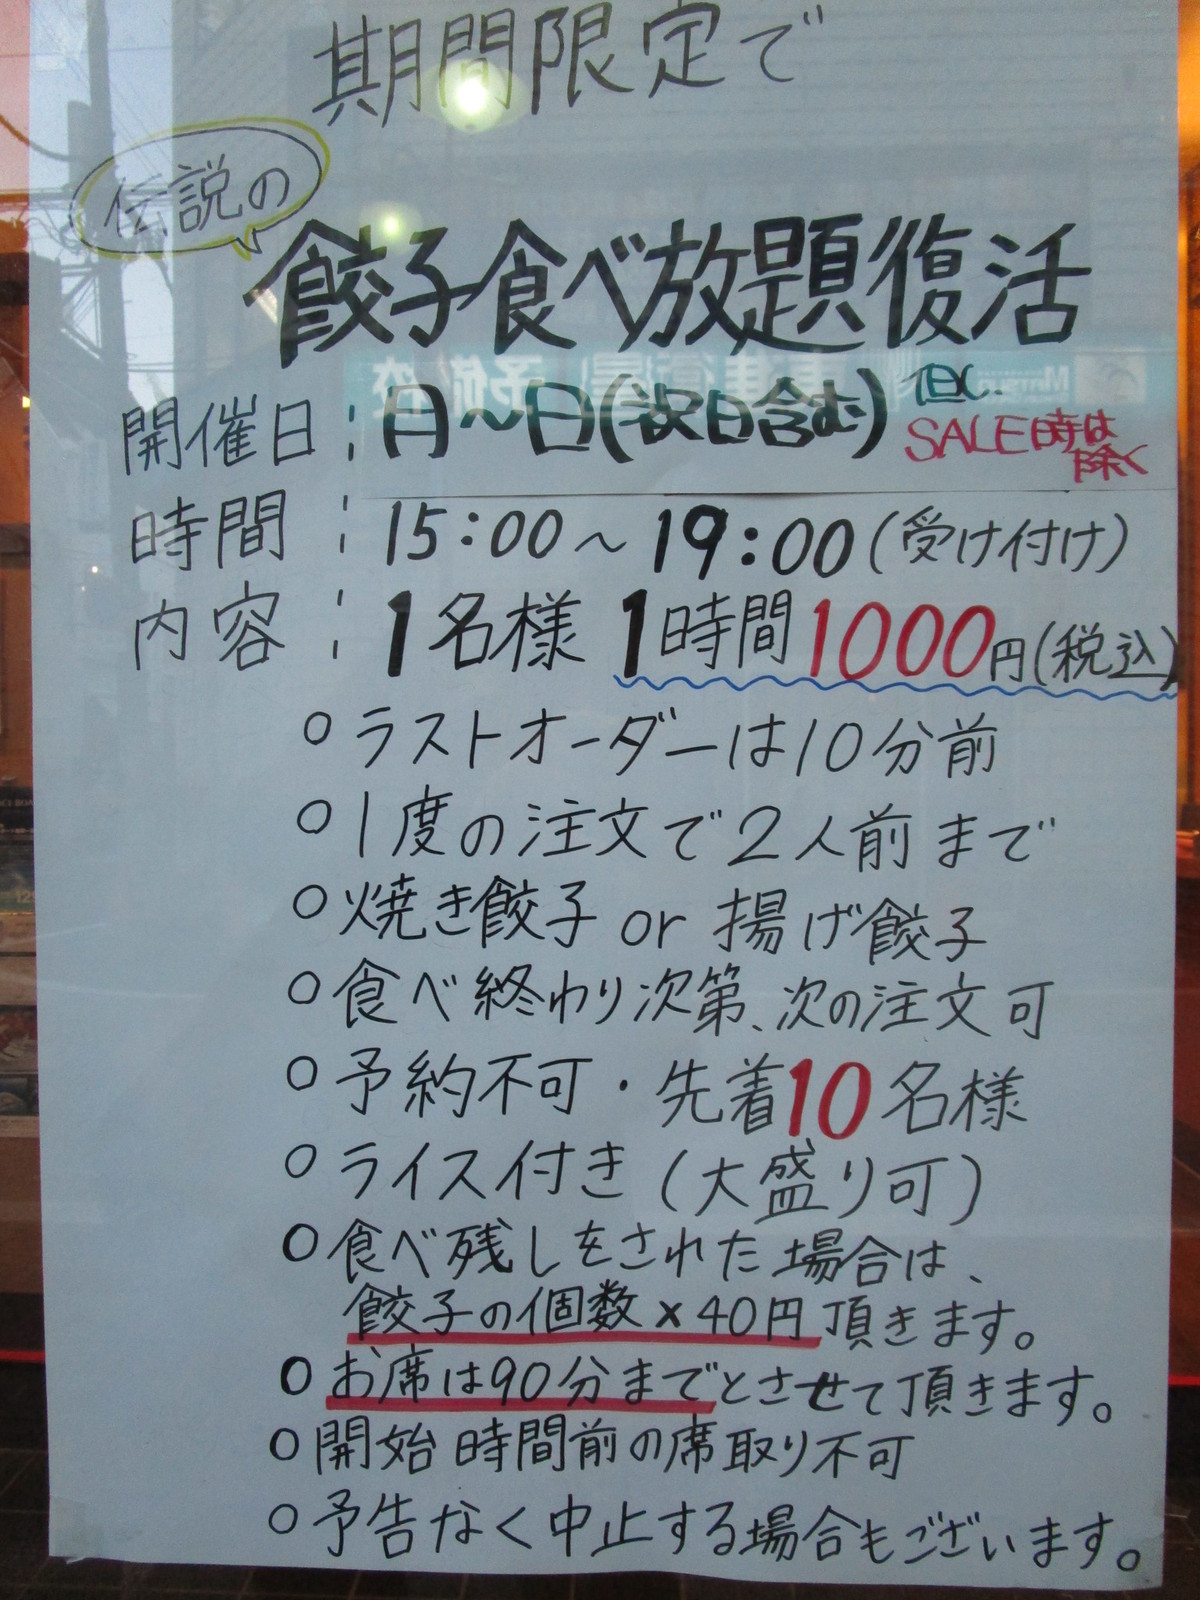 期間限定で
伝説の
餃子食べ放題復活
開催日：月〜日(祝日含む) 但し
SALE時は
除く
時間：15:00〜19:00(受け付け)
内容：1名様 1時間1000円(税込)
○ラストオーダーは10分前
○1度の注文で2人前まで
○焼き餃子 or 揚げ餃子
○食べ終わり次第、次の注文可
○予約不可・先着10名様
○ライス付き(大盛り可)
○食べ残しをされた場合は、
餃子の個数×40円頂きます。
○お席は90分までとさせて頂きます。
○開始時間前の席取り不可
○予告なく中止する場合もございます。